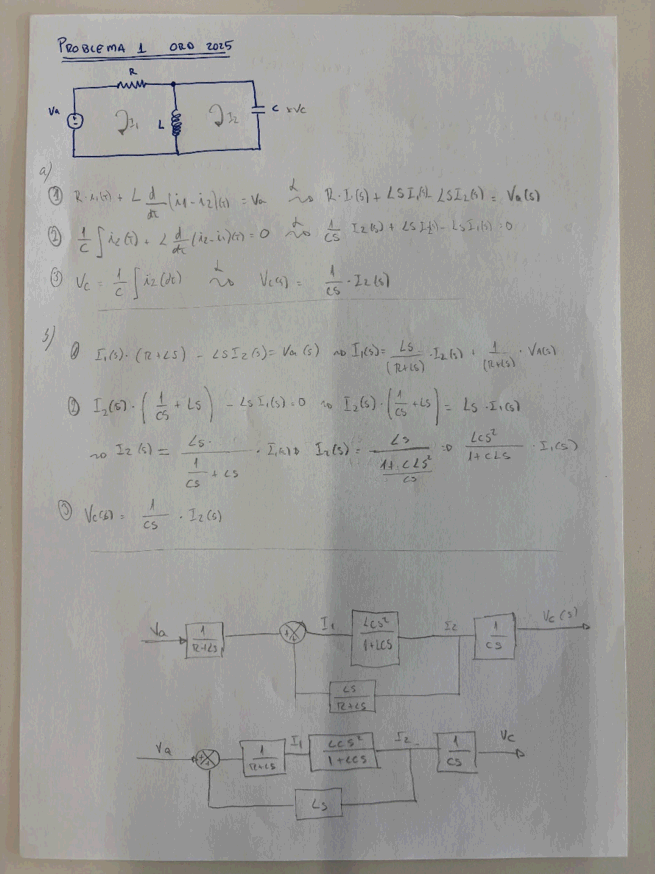 PROBLEMA 1 ORD 2025
R
Va I1 L I2 C xVc
a)
① R·i1(t) + L d/dt (i1-i2)(t) = Va ⇝ R·I1(s) + LS I1(s) - LS I2(s) = Va(s)
② 1/C ∫ i2(t) + L d/dt (i2-i1)(t) = 0 ⇝ 1/CS I2(s) + LS I2(s) - LS I1(s) = 0
③ Vc = 1/C ∫ i2(dt) ⇝ Vc(s) = 1/CS · I2(s)
b)
① I1(s)·(R+LS) - LS I2(s) = Va(s) ⇝ I1(s) = LS/(R+LS) · I2(s) + 1/(R+LS) · Va(s)
② I2(s)·(1/CS + LS) - LS I1(s) = 0 ⇝ I2(s)·(1/CS + LS) = LS · I1(s)
⇝ I2(s) = LS/(1/CS + LS) · I1(s) ⇝ I2(s) = LS/((1+CLS²)/CS) ⇒ LCS²/(1+CLS) · I1(s)
③ Vc(s) = 1/CS · I2(s)
Va 1/(R+LS) I1 LCS²/(1+LCS) I2 1/CS Vc(s)
LS/(R+LS)
Va 1/(R+LS) I1 LCS²/(1+LCS) I2 1/CS Vc
LS